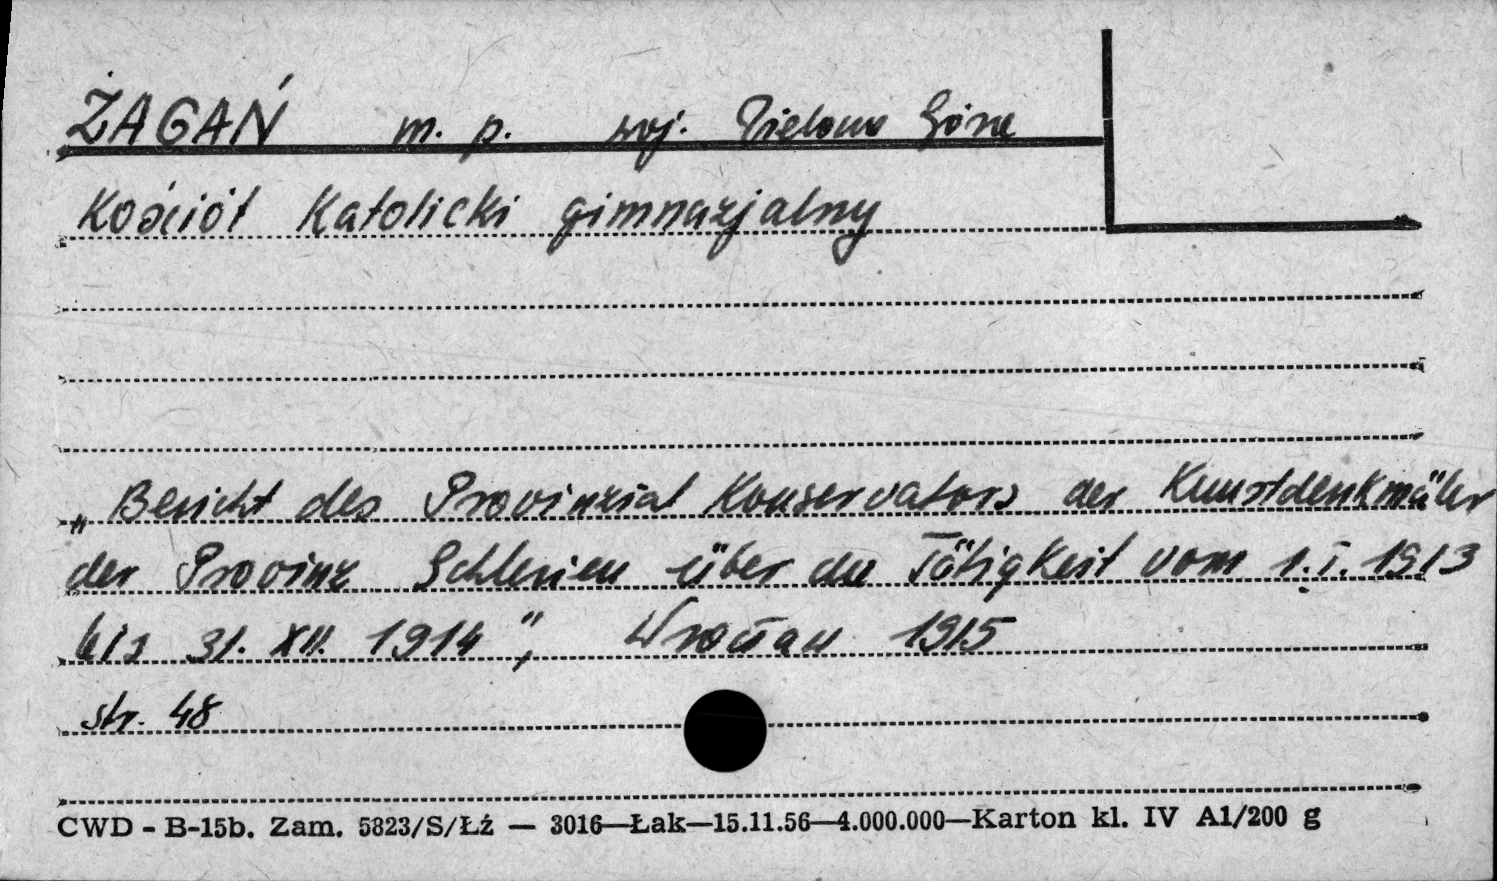 ŻAGAŃ m. p. woj. Zielona Góra
Kościół Katolicki gimnazjalny
„Bericht des Provinzial Konservators der Kunstdenkmäler
der Provinz Schlesien über die Tätigkeit vom 1.I.1913
bis 31. XII. 1914", Wrocław 1915
str. 48
CWD - B-15b. Zam. 5823/S/Łź — 3016—Łak—15.11.56—4.000.000—Karton kl. IV A1/200 g